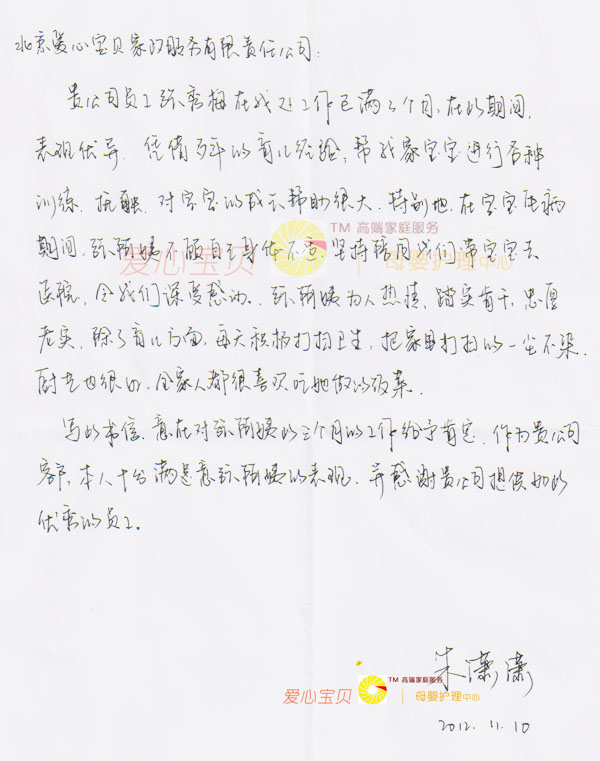 北京爱心宝贝家政服务有限责任公司:
贵公司员工张秀梅在我处工作已满三个月,在此期间,
表现优异,凭借多年的育儿经验,帮我家宝宝进行各种
训练、抚触,对宝宝的成长帮助很大。特别地,在宝宝生病
TM 高端家庭服务
期间,张阿姨不顾自己身体不适坚持陪同我们带宝宝去
爱心宝贝 母婴护理中心
医院,令我们深受感动。张阿姨为人热情、踏实肯干、忠厚
老实,除了育儿方面,每天积极打扫卫生,把家里打扫的一尘不染。
厨艺也很好,全家人都很喜欢吃她做的饭菜。
写此书信,意在对张阿姨的三个月的工作给予肯定,作为贵公司
客户,本人十分满意张阿姨的表现,并感谢贵公司提供如此
优秀的员工。
朱潇潇
TM 高端家庭服务
爱心宝贝 母婴护理中心
2012.11.10